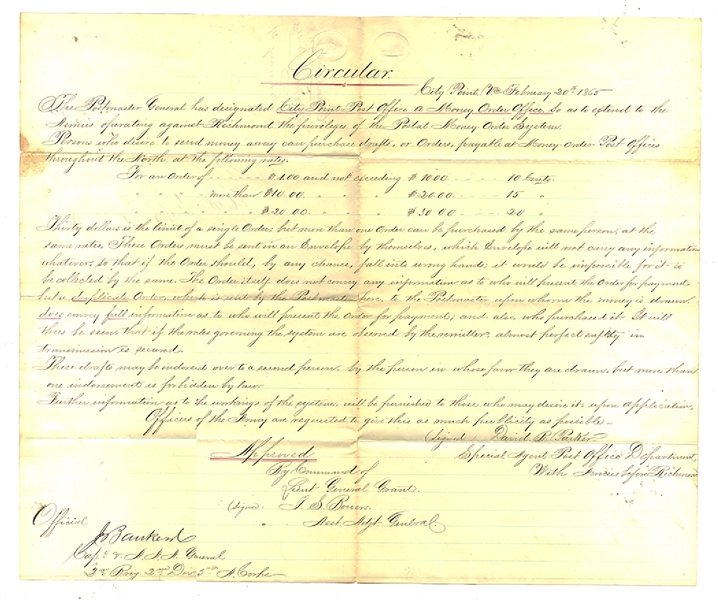 Circular.
City Point, Va February 20th 1865
The Postmaster General has designated City Point Post Office a Money Order Office. So as to extend to the
Armies operating against Richmond the privileges of the Postal Money Order System.
Persons who desire to send money away can purchase drafts, or Orders, payable at Money Order Post Offices
throughout the North at the following rates:
For an Order of $1.00 and not exceeding $10.00 10 Cents
" " " more than $10.00 " " $20.00 15 "
" " " " $20.00 " " $30.00 20 "
Thirty dollars is the limit of a single Order, but more than one Order can be purchased by the same person, at the
same rates. These Orders must be sent in an Envelope by themselves, which Envelope will not carry any information
whatever, so that if the Order should, by any chance, fall into wrong hands, it would be impossible for it to
be collected by the same. The Order itself does not convey any information as to who will present the Order for payment,
but a duplicate Order, which is sent by the Postmaster here, to the Postmaster upon whom the money is drawn
does convey full information as to who will present the Order for payment, and also who purchased it. It will
thus be seen, that if the rules governing the system are observed by the remitter, almost perfect safety in
transmission is secured.
These drafts may be indorsed over to a second person by the person in whose favor they are drawn, but more than
one indorsement is forbidden by law.
Further information as to the workings of the system will be furnished to those who may desire it, upon application,
Officers of the Army are requested to give this as much publicity as possible.
(signed) David B. Parker
Special Agent Post Office Department,
With Armies before Richmond
Approved
By Command of
Lieut General Grant.
(Signed) T. S. Bowers
Asst. Adjt General.
Official
Capt & A. A. A. General
2nd Brig. 2nd Div. 5th A. Corps